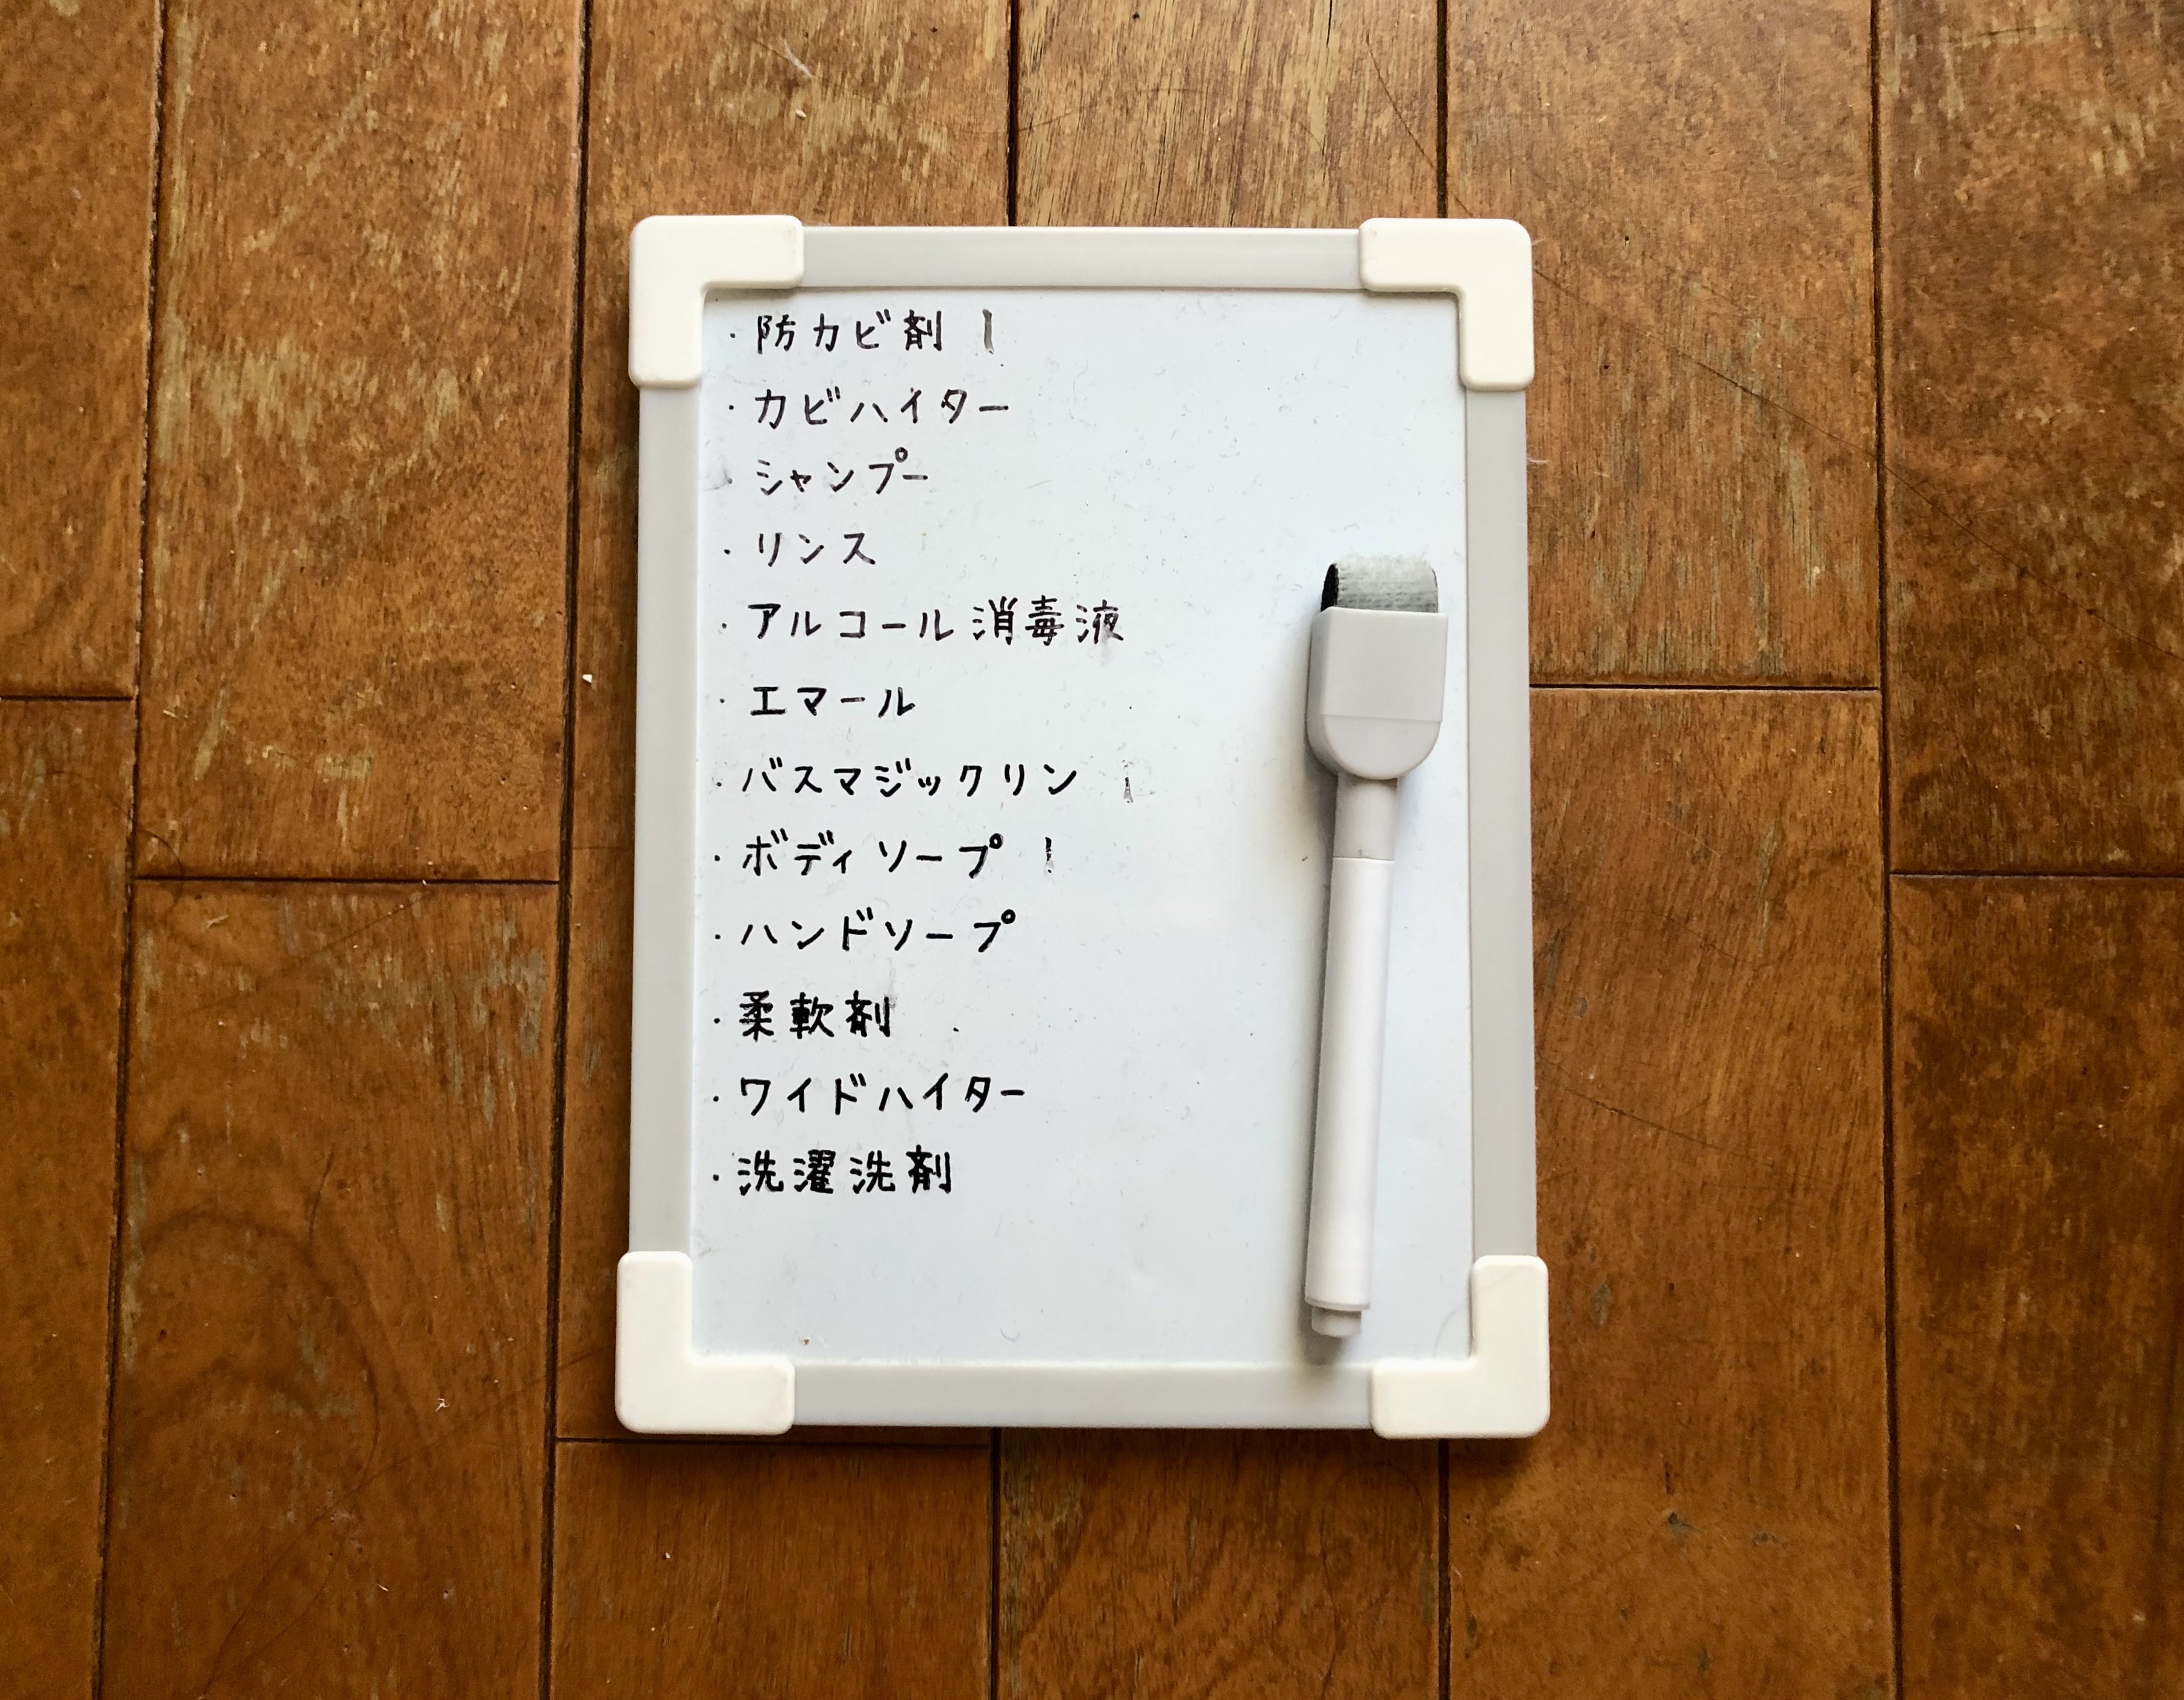 ・防カビ剤 1
・カビハイター
・シャンプー
・リンス
・アルコール消毒液
・エマール
・バスマジックリン 1
・ボディソープ 1
・ハンドソープ
・柔軟剤
・ワイドハイター
・洗濯洗剤